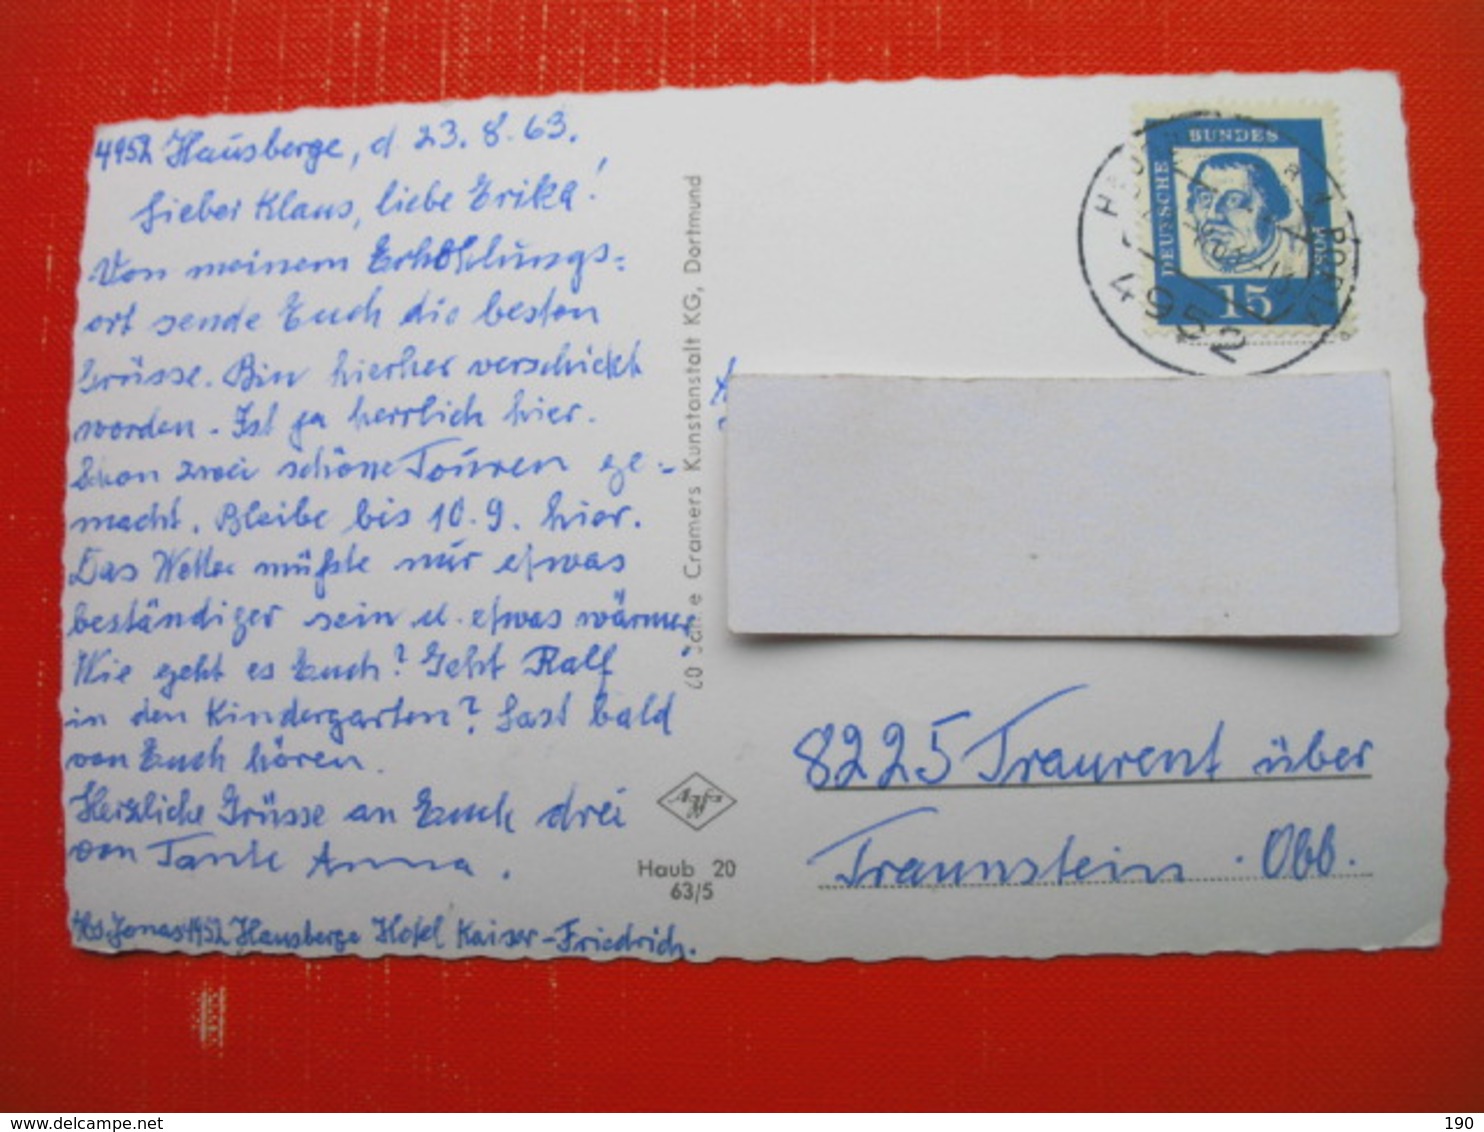 4952 Hausberge, d 23.8.63.
Lieber Klaus, liebe Erika!
Von meinem Erhohlungs=
ort sende Euch die besten
Grüsse. Bin hierher verschickt
worden. Ist ja herrlich hier.
Schon zwei schöne Touren ge-
macht. Bleibe bis 10.9. hier.
Das Wetter müßte nur etwas
beständiger sein u. etwas wärmer.
Wie geht es Euch? Geht Ralf
in den Kindergarten? Last bald
von Euch hören.
Herzliche Grüsse an Euch drei
von Tante Anna.
Jonas 4952 Hausberge Hotel Kaiser-Friedrich.
Cramers Kunstanstalt KG, Dortmund
Agfa
Haub 20
63/5
DEUTSCHE
BUNDES
POST
15
4952
PORTA
8225 Traunreut über
Traunstein. Obb.
www.delcampe.net
kolman
190